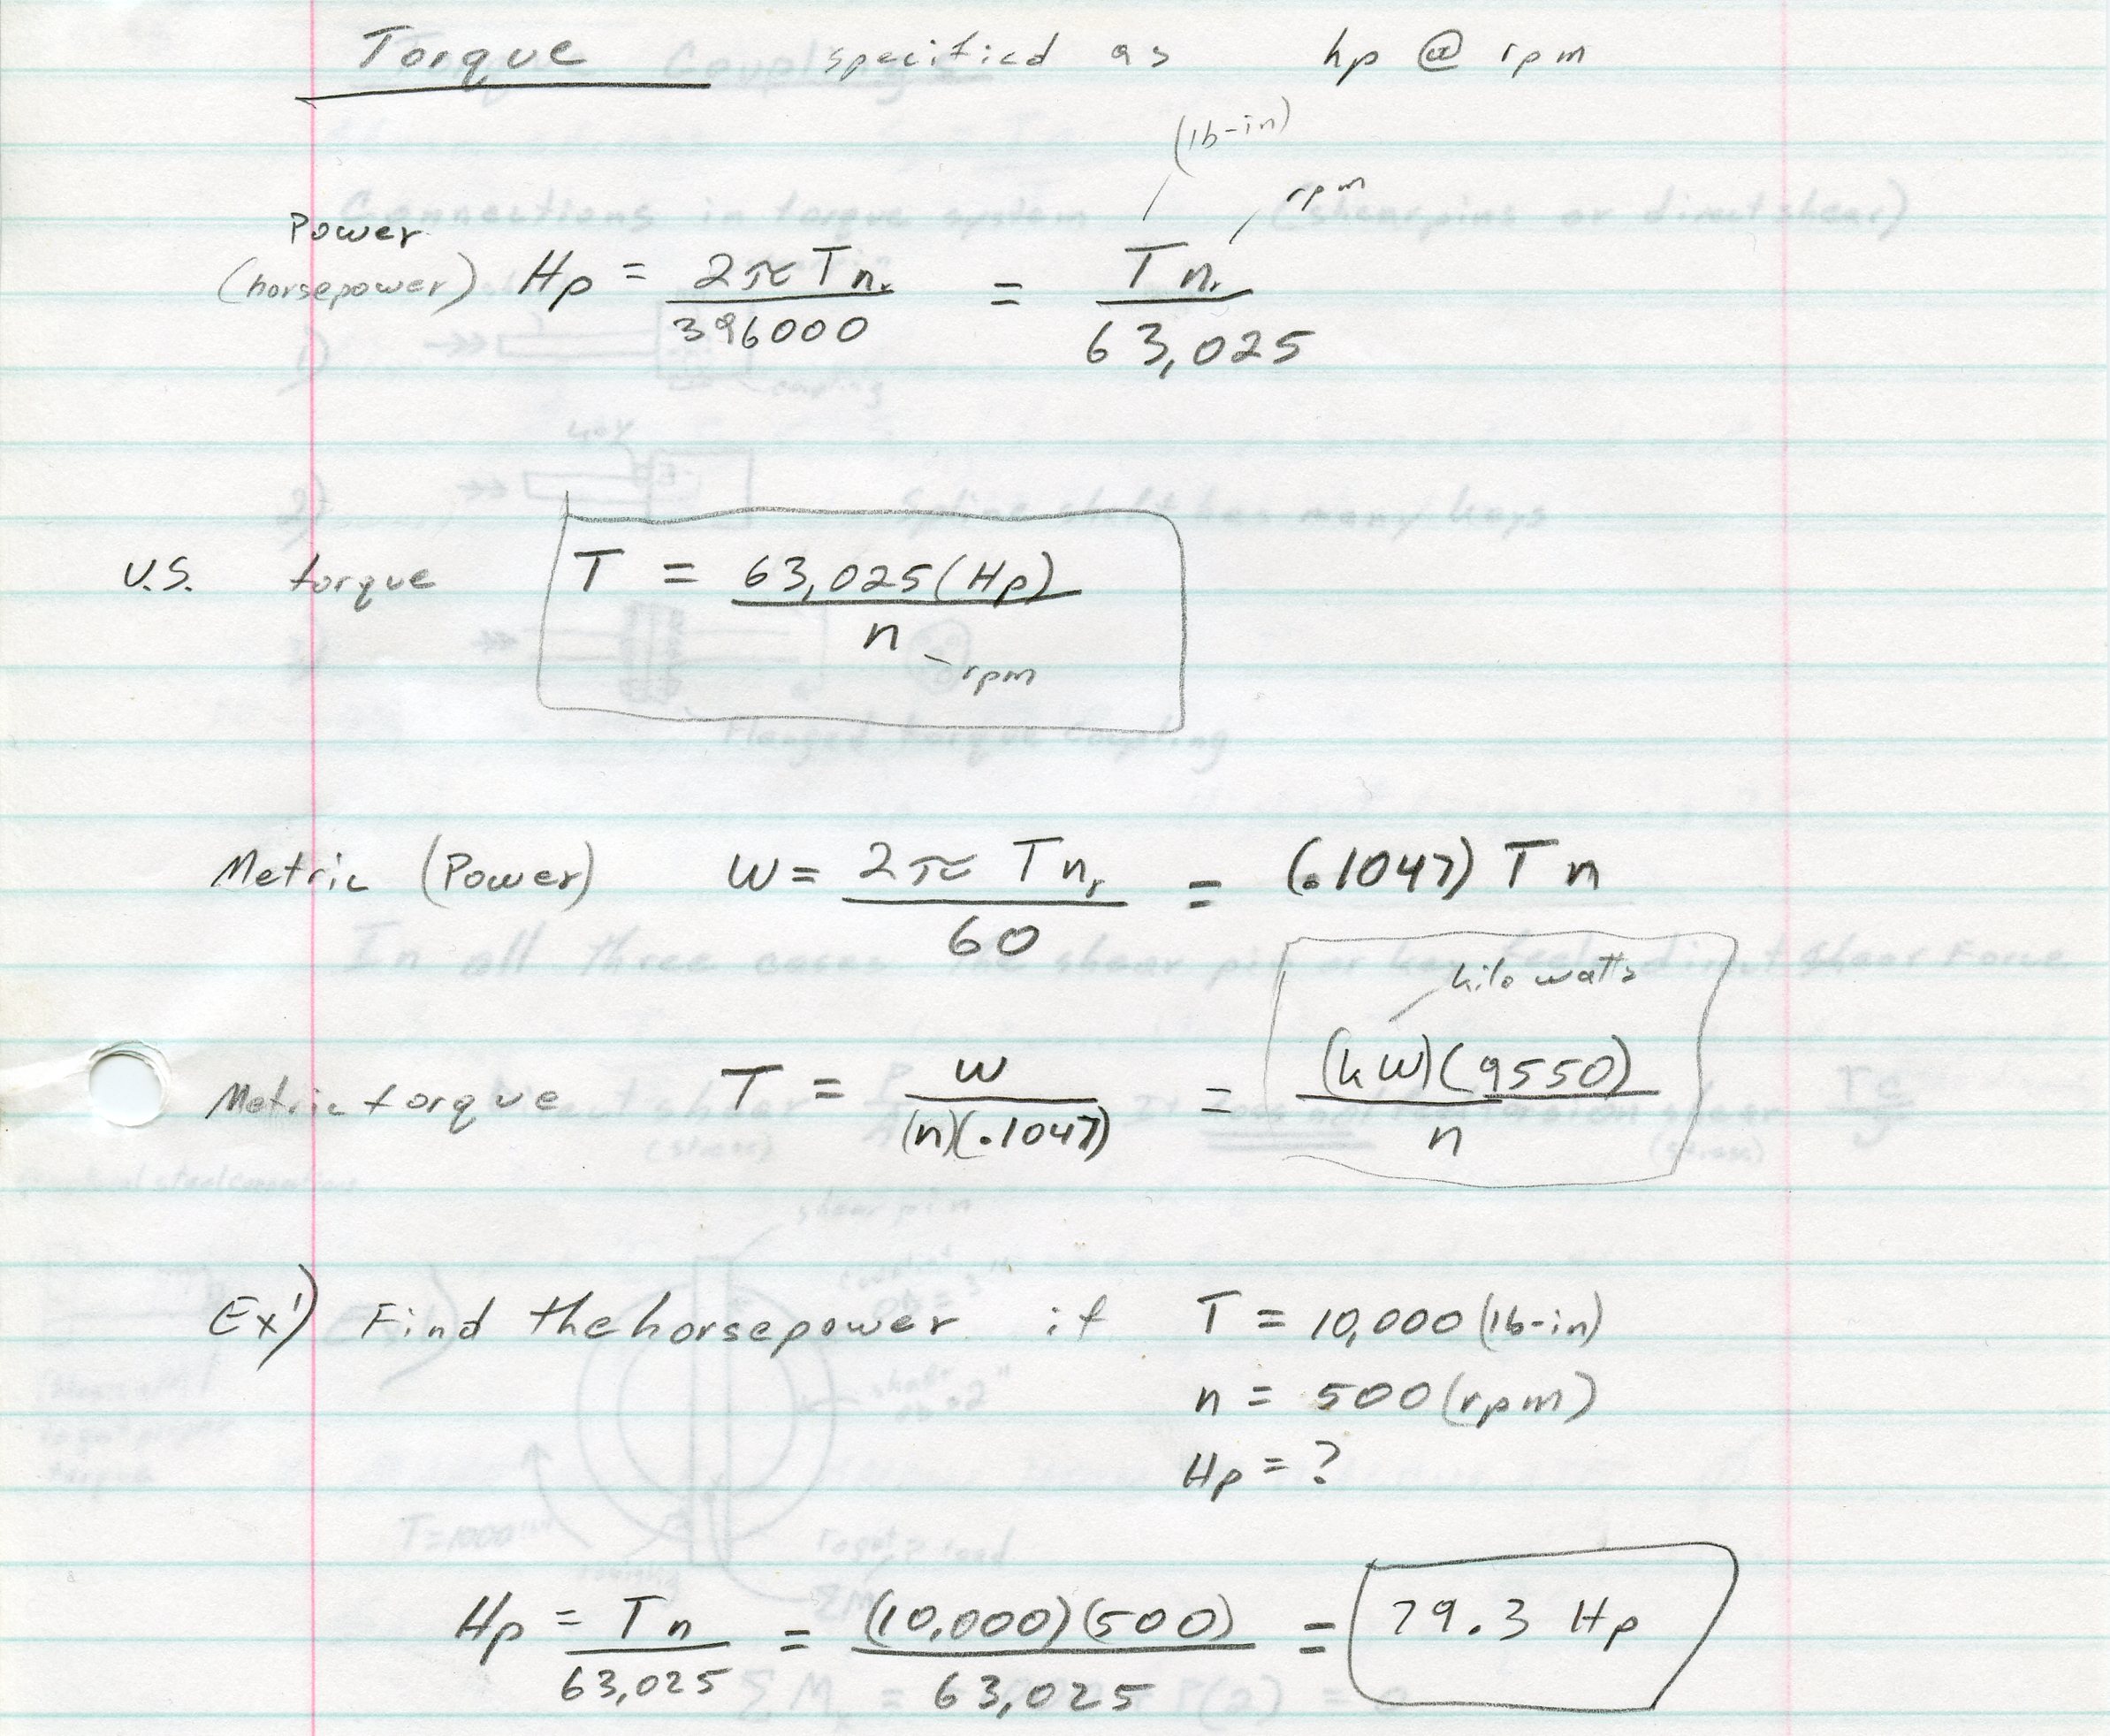 Torque specified as hp @ rpm
(lb-in)
rpm
Power
(horsepower) Hp = 2π T nr / 396000 = T nr / 63,025
U.S. torque T = 63,025 (Hp) / n
rpm
Metric (Power) W = 2π T nr / 60 = (.1047) T n
kilo watts
Metric torque T = W / (n)(.1047) = (kW)(9550) / n
Ex') Find the horsepower if T = 10,000 (lb-in)
n = 500 (rpm)
Hp = ?
Hp = Tn / 63,025 = (10,000)(500) / 63,025 = 79.3 Hp